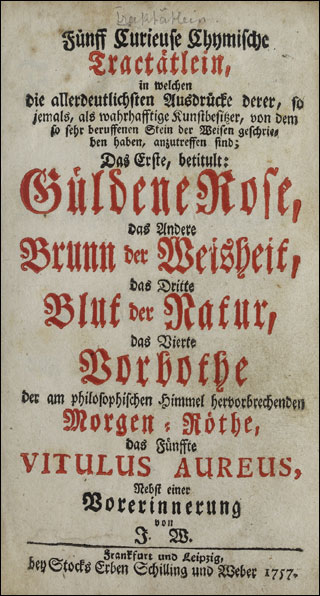 Tractätlein
Fünff Curieuse Chymische
Tractätlein,
in welchen
die allerdeutlichsten Ausdrücke derer, so
jemals, als wahrhafftige Kunstbesitzer, von dem
so sehr beruffenen Stein der Weisen geschrie-
ben haben, anzutreffen sind;
Das Erste, betitult:
Güldene Rose,
das Andere
Brunn der Weisheit,
das Dritte
Blut der Natur,
das Vierte
Vorbothe
der am philosophischen Himmel hervorbrechenden
Morgen-Röthe,
das Fünffte
VITULUS AUREUS,
Nebst einer
Vorerinnerung
von
J. W.
Franckfurt und Leipzig,
bey Stocks Erben Schilling und Weber 1757.